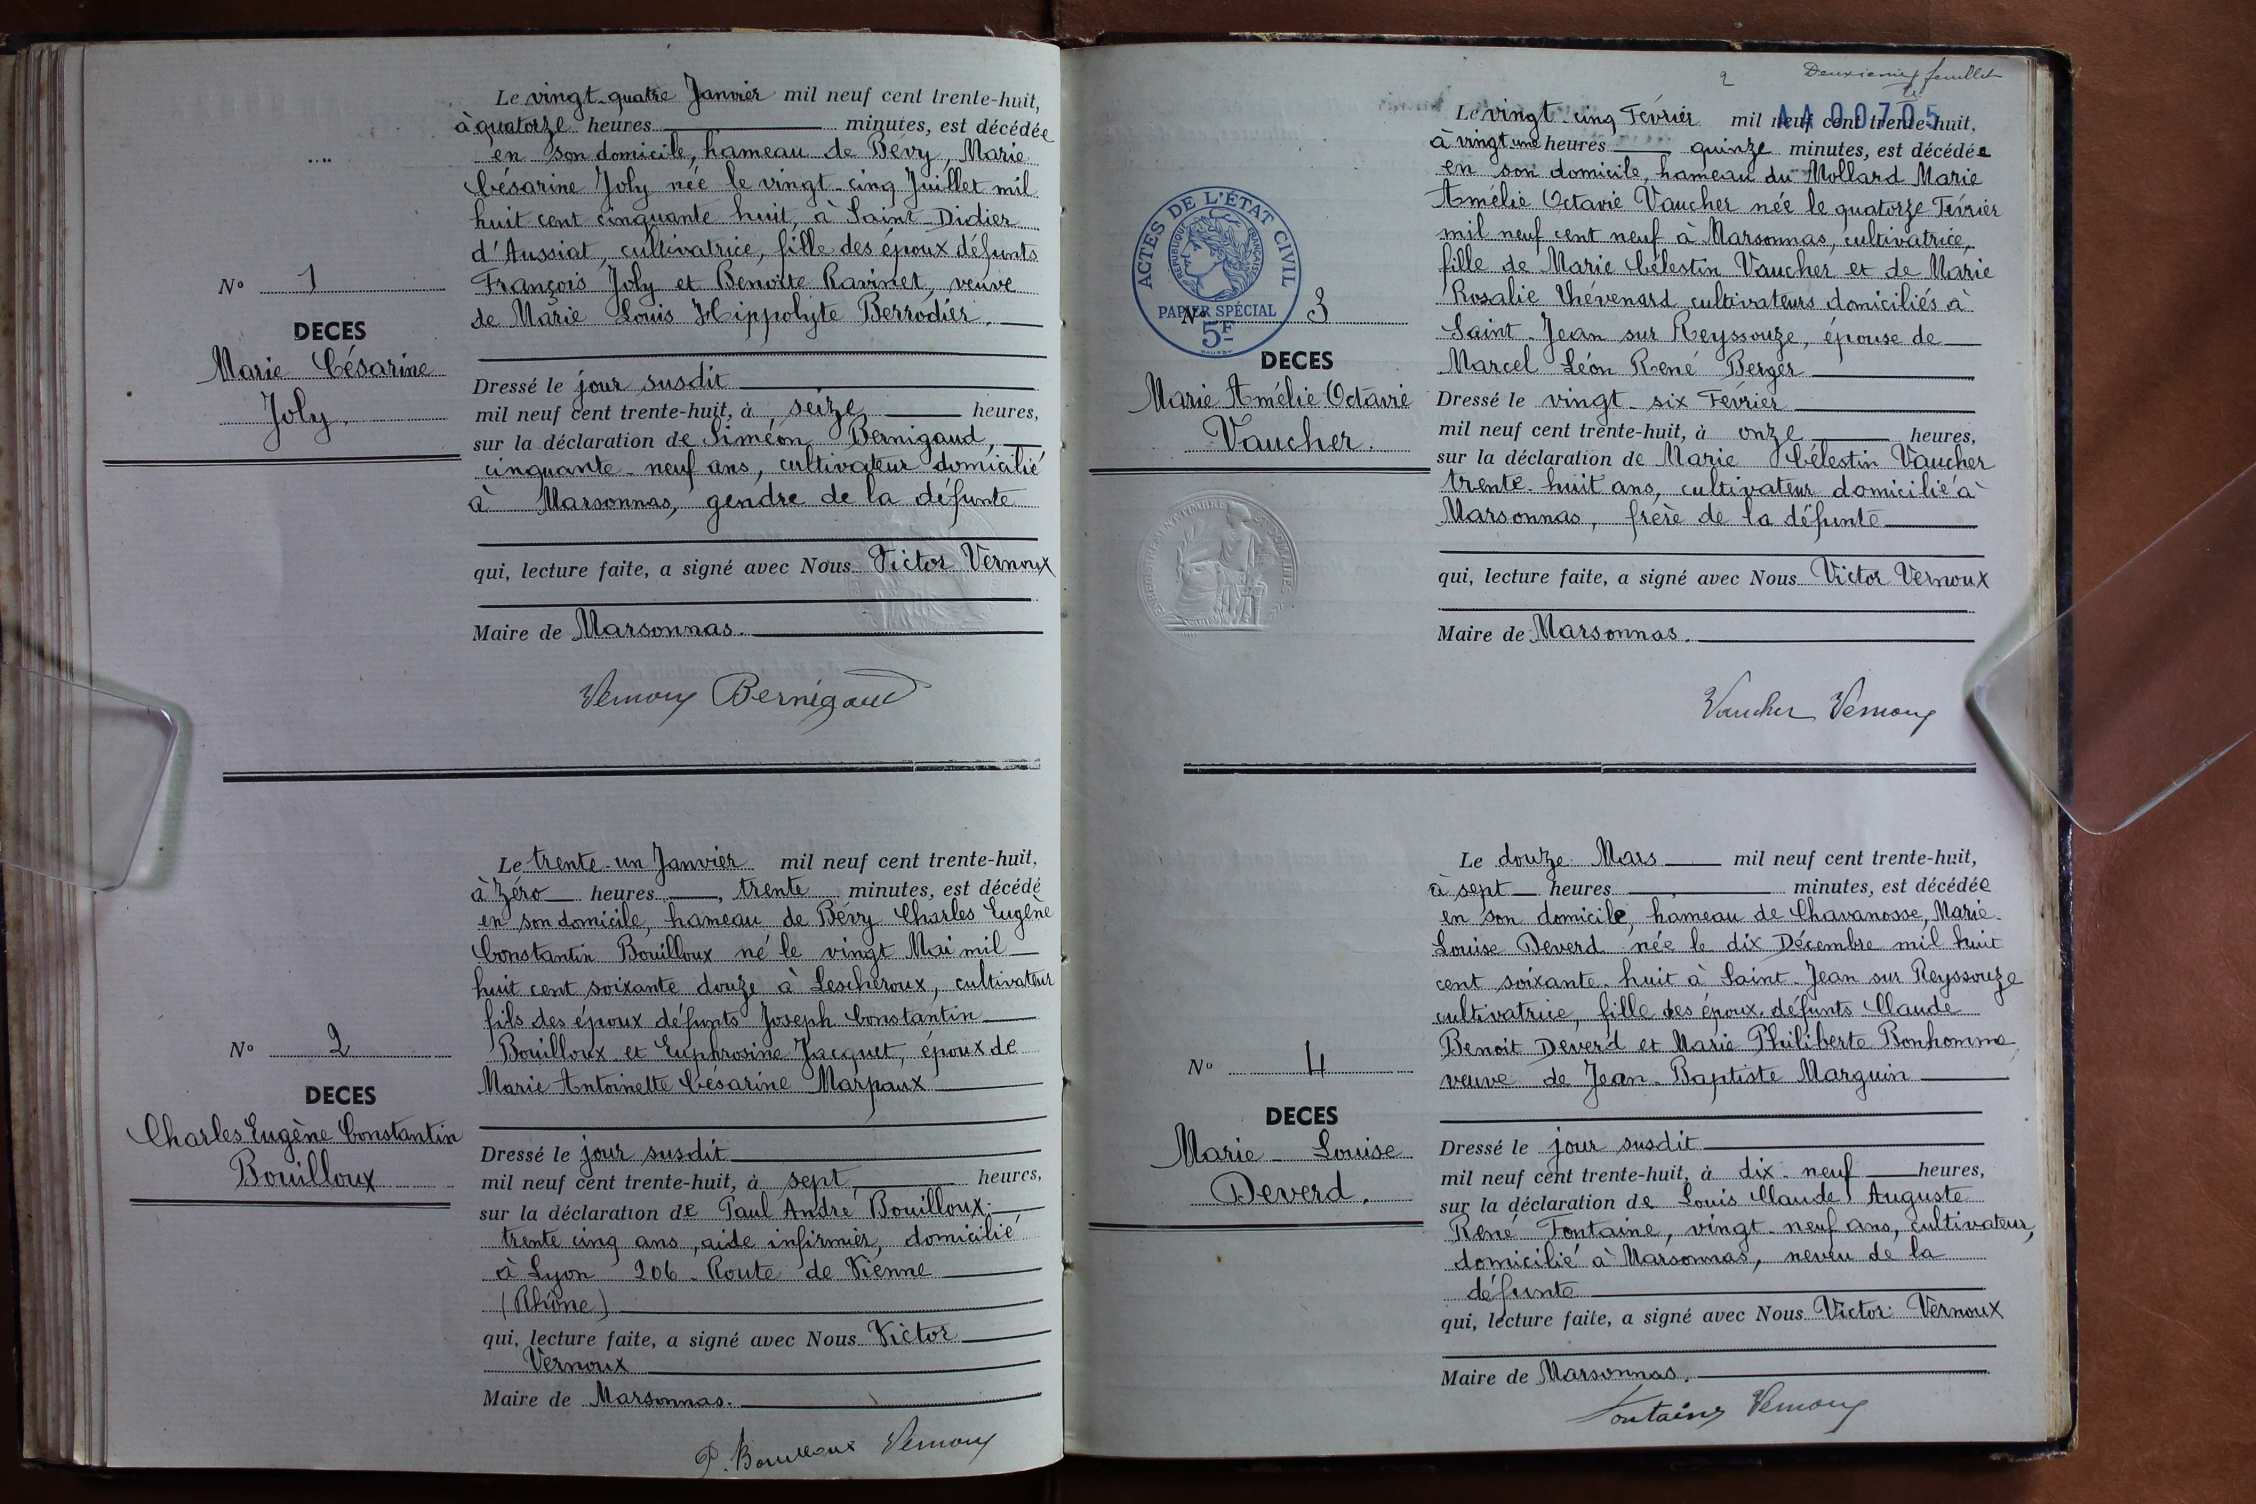 Le vingt-quatre Janvier mil neuf cent trente-huit,
à quatorze heures minutes, est décédée
en son domicile, hameau de Bévy, Marie
Césarine Joly née le vingt-cinq Juillet mil
huit cent cinquante huit, à Saint-Didier
d'Aussiat, cultivatrice, fille des époux défunts
François Joly et Benoîte Ravinet, veuve
de Marie Louis Hippolyte Berrodier.
Nº 1
DECES
Marie Césarine
Joly.
Dressé le jour susdit
mil neuf cent trente-huit, à seize heures,
sur la déclaration de Siméon Bernigaud,
cinquante-neuf ans, cultivateur domicilié
à Marsonnas, gendre de la défunte
qui, lecture faite, a signé avec Nous Victor Vernoux
Maire de Marsonnas.
Vernoux Bernigaud
Le trente-un Janvier mil neuf cent trente-huit,
à zéro heures, trente minutes, est décédé
en son domicile, hameau de Bévy Charles Eugène
Constantin Bouilloux né le vingt Mai mil
huit cent soixante douze à Lescheroux, cultivateur
fils des époux défunts Joseph Constantin
Bouilloux et Euphrosine Jacquet, époux de
Marie Antoinette Césarine Marpaux
Nº 2
DECES
Charles Eugène Constantin
Bouilloux
Dressé le jour susdit
mil neuf cent trente-huit, à sept heures,
sur la déclaration de Paul André Bouilloux
trente cinq ans, aide infirmier, domicilié
à Lyon 206 Route de Vienne
(Rhône)
qui, lecture faite, a signé avec Nous Victor
Vernoux
Maire de Marsonnas.
P. Bouilloux Vernoux
2 Deuxième feuillet
AA00705
Le vingt-cinq Février mil neuf cent trente-huit,
à vingt une heures quinze minutes, est décédée
en son domicile, hameau du Mollard Marie
Amélie Octavie Vaucher née le quatorze Février
mil neuf cent neuf à Marsonnas, cultivatrice,
fille de Marie Célestin Vaucher et de Marie
Rosalie Thévenard cultivateurs domiciliés à
Saint-Jean sur Reyssouze, épouse de
Marcel Léon René Berger
ACTES DE L'ÉTAT CIVIL
RÉPUBLIQUE FRANÇAISE
PAPIER SPÉCIAL
5F
Nº 3
DECES
Marie Amélie Octavie
Vaucher.
Dressé le vingt-six Février
mil neuf cent trente-huit, à onze heures,
sur la déclaration de Marie Célestin Vaucher
trente-huit ans, cultivateur domicilié à
Marsonnas, frère de la défunte
qui, lecture faite, a signé avec Nous Victor Vernoux
Maire de Marsonnas.
Vaucher Vernoux
Le douze Mars mil neuf cent trente-huit,
à sept heures minutes, est décédée
en son domicile, hameau de Chavanosse, Marie-
Louise Deverd née le dix Décembre mil huit
cent soixante-huit à Saint-Jean sur Reyssouze
cultivatrice, fille des époux défunts Claude
Benoit Deverd et Marie Philiberte Bonhomme,
veuve de Jean-Baptiste Marguin
Nº 4
DECES
Marie-Louise
Deverd.
Dressé le jour susdit
mil neuf cent trente-huit, à dix-neuf heures,
sur la déclaration de Louis Claude Auguste
René Fontaine, vingt-neuf ans, cultivateur,
domicilié à Marsonnas, neveu de la
défunte
qui, lecture faite, a signé avec Nous Victor Vernoux
Maire de Marsonnas.
Fontaine Vernoux